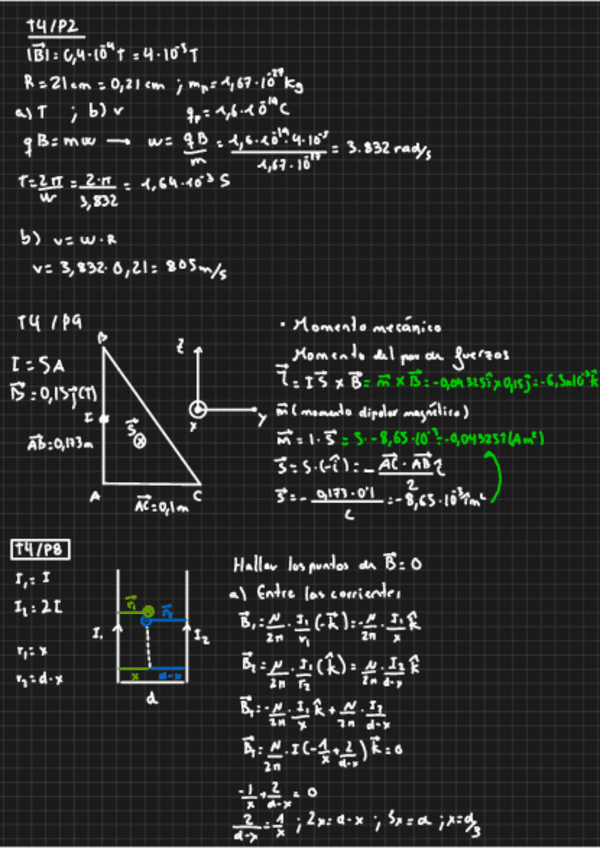 T4/P2
|B⃗| = 0,4·10⁻⁴ T = 4·10⁻⁵ T
R = 21 cm = 0,21 cm ; mₚ = 1,67·10⁻²⁷ kg
a) T ; b) v qₚ = 1,6·10⁻¹⁹ C
qB = mw → w = qB/m = 1,6·10⁻¹⁹·4·10⁻⁵/1,67·10⁻²⁷ = 3.832 rad/s
T = 2π/w = 2·π/3,832 = 1,64·10⁻³ S
b) v = w·R
v = 3,832·0,21 = 805 m/s
T4/P9
I = 5A
B⃗ = 0,15 j⃗ (T)
AB⃗ = 0,173 m
B
I
S⃗
A
C
AC⃗ = 0,1 m
z
x
y
· Momento mecánico
Momento del par de fuerzas
τ⃗ = I S⃗ × B⃗ = m⃗ × B⃗ = -0,04325 i⃗ × 0,15 j⃗ = -6,5·10⁻³ k⃗
m⃗ (momento dipolar magnético)
m⃗ = I·S⃗ = 5·-8,65·10⁻³ = -0,04325 i⃗ (Am²)
S⃗ = S·(-i⃗) = - AC⃗·AB⃗/2 i⃗
S⃗ = - 0,173·0'1/2 = -8,65·10⁻³ i⃗ m²
T4/P8
I₁ = I
I₂ = 2I
r₁ = x
r₂ = d-x
I₁
I₂
r⃗₁
r⃗₂
x
d-x
d
Hallar los puntos de B⃗ = 0
a) Entre las corrientes
B⃗₁ = μ/2π · I₁/r₁ (-k⃗) = -μ/2π · I₁/x k̂
B⃗₂ = μ/2π · I₂/r₂ (k̂) = μ/2π · I₂/d-x k̂
B⃗₁ = -μ/2π · I₁/x k̂ + μ/2π · I₂/d-x
B⃗₁ = μ/2π · I(-1/x + 2/d-x) k⃗ = 0
-1/x + 2/d-x = 0
2/d-x = 1/x ; 2x = d-x ; 3x = d ; x = d/3